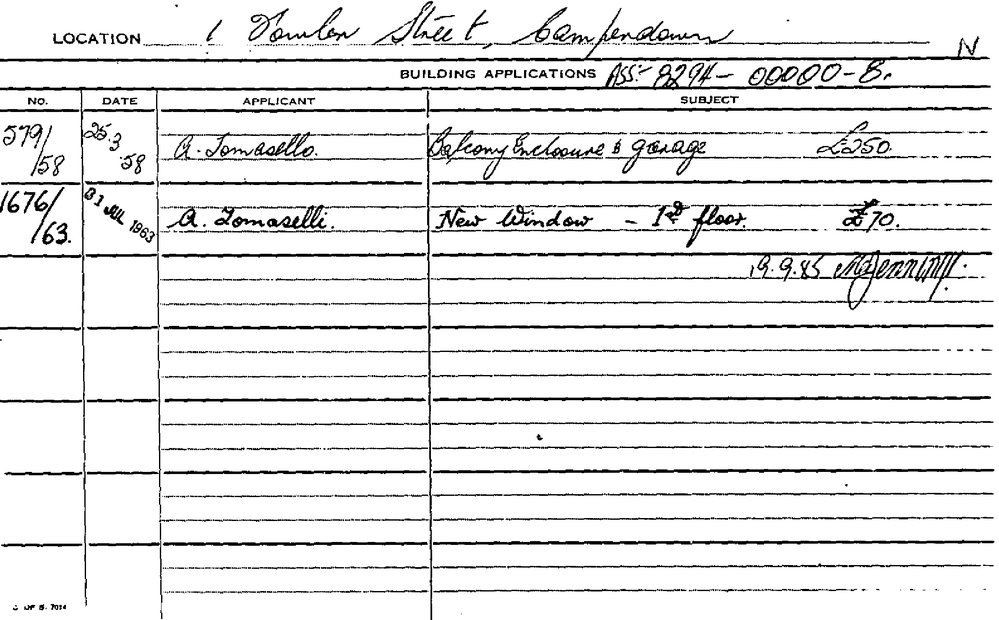 LOCATION 1 Fowler Street, Camperdown
N
BUILDING APPLICATIONS ASS:- 8294-00000-8.
NO. DATE APPLICANT SUBJECT
579/58 25.3.58 A. Tomasello. Balcony Enclosure & garage £250
1676/63. 31 JUL 1963 A. Tomaselli. New Window - 1st floor. £70.
19.9.85